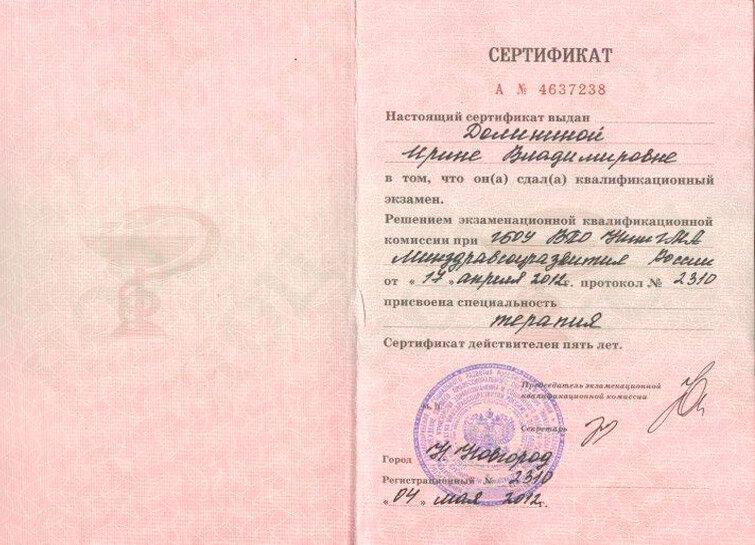 СЕРТИФИКАТ
А № 4637238
Настоящий сертификат выдан
Долининой
Ирине Владимировне
в том, что он(а) сдал(а) квалификационный
экзамен.
Решением экзаменационной квалификационной
комиссии при ГБОУ ВПО НижГМА
Минздравсоцразвития России
от « 17 » апреля 2012г. протокол № 2310
присвоена специальность
терапия
Сертификат действителен пять лет.
Председатель экзаменационной
квалификационной комиссии
М. П.
Секретарь
Город Н. Новгород
Регистрационный № 2310
« 04 » мая 2012г.